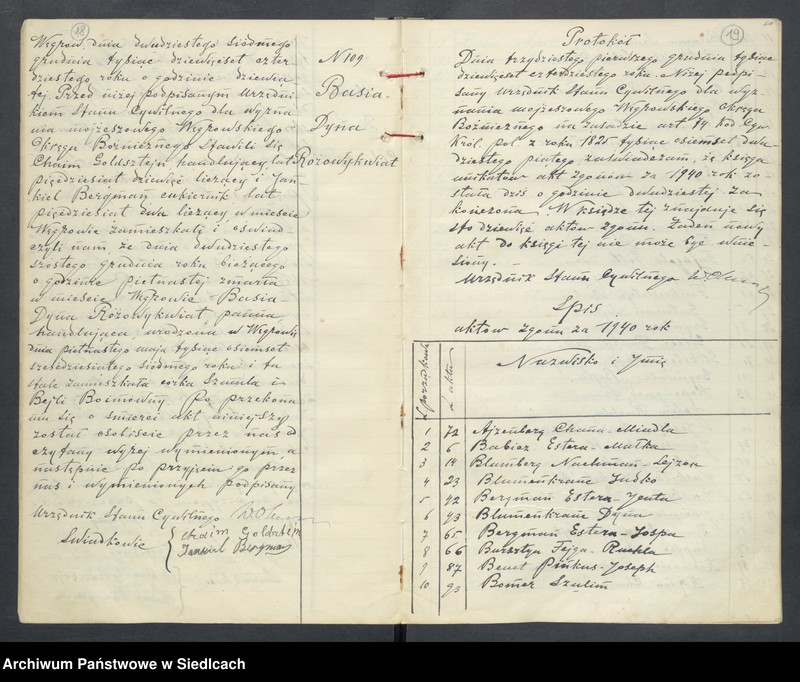 18
Węgrów, dnia dwudziestego siódmego
grudnia tysiąc dziewięćset czter
dziestego roku o godzinie dziewią
tej. Przed niżej podpisanym urzędni
kiem Stanu Cywilnego dla wyzna
nia mojżeszowego Węgrowskiego
Okręgu Bożniczego stawili się
Chaim Goldsztejn handlujący lat
pięćdziesiąt dziewięć liczący i Jan
kiel Bergman cukiernik lat
pięćdziesiąt dwa liczący w mieście
Węgrowie zamieszkali i oświad
czyli nam, że dnia dwudziestego
szóstego grudnia roku bieżącego
o godzinie piętnastej zmarła
w mieście Węgrowie Basia-
Dyna Rozowykwiat, panna,
handlująca, urodzona w Węgrowie
dnia piętnastego maja tysiąc osiemset
sześćdziesiątego siódmego roku i tu
stale zamieszkała córka Szmula i
Bejli Boimowny. Po przekona
niu się o śmierci akt niniejszy
został osobiście przez nas od
czytany wyżej wymienionym, a
następnie po przyjęciu go przez
nas i wymienionych podpisany
Urzędnik Stanu Cywilnego
Świadkowie { Chaim Goldsztejn
Jankiel Bergman
N 109
Basia-
Dyna
Rozowykwiat
19
Protokół
Dnia trzydziestego pierwszego grudnia tysiąc
dziewięćset czterdziestego roku. Niżej podpi-
sany urzędnik Stanu Cywilnego dla wyz-
nania mojżeszowego Węgrowskiego Okręgu
Bożniczego na zasadzie art. 74 Kod. Cyw.
Król. pol. z roku 1825 tysiąc osiemset dwu
dziestego piątego zaświadczam, że księga
unikatów akt zgonów za 1940 rok zo
stała dziś o godzinie dwudziestej za
kończona. W księdze tej znajduje się
sto dziewięć aktów zgonu. Żaden nowy
akt do księgi tej nie może być wnie-
siony. -
Urzędnik Stanu Cywilnego
Spis
aktów zgonu za 1940 rok
L. porządkowa
L. akta
Nazwisko i Imię
1 72 Ajzenberg Chana-Mindla
2 6 Babicz Estera-Matka
3 14 Blumberg Nachman-Lejzor
4 23 Blumenkranc Judko
5 42 Bergman Estera-Jenta
6 43 Blumenkranc Dyna
7 65 Bergman Estera-Jospa
8 66 Bursztyn Fejga-Ruchla
9 87 Benet Pinkus-Joseph
10 93 Bomer Szulim
Archiwum Państwowe w Siedlcach